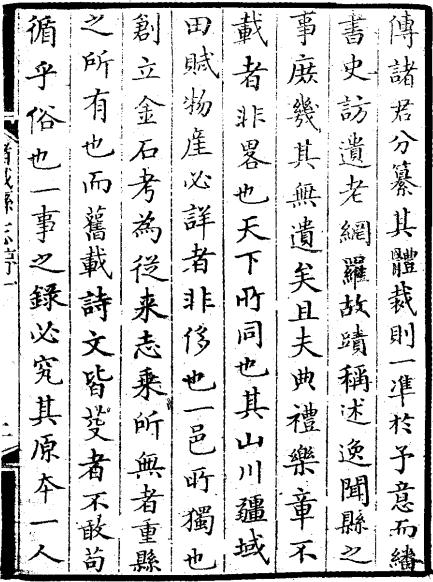 傳諸君分纂其體裁則一準於予意而繙
書史訪遺老網羅故蹟稱述逸聞縣之
事庶幾其無遺矣且夫典禮樂章不
載者非畧也天下所同也其山川疆域
田賦物産必詳者非侈也一邑所獨也
創立金石考為從来志乗所無者重縣
之所有也而舊載詩文皆芟者不敢苟
循乎俗也一事之錄必究其原本一人
諸城縣志序一